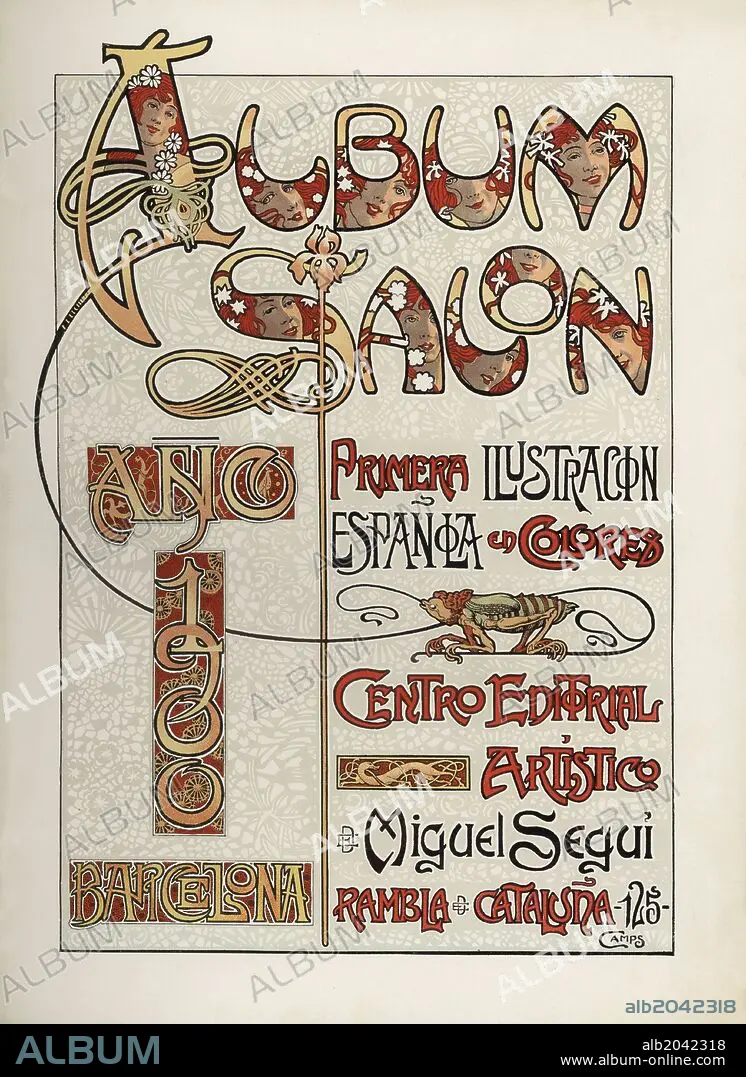 ALBUM
SALON
AÑO
1900
BARCELONA
PRIMERA ILUSTRACION
ESPAÑOLA en COLORES
CENTRO EDITORIAL
ARTÍSTICO
DE Miguel Seguí
RAMBLA DE CATALUÑA -125-
CAMPS
alb2042318
ALBUM
alb2042318
www.album-online.com